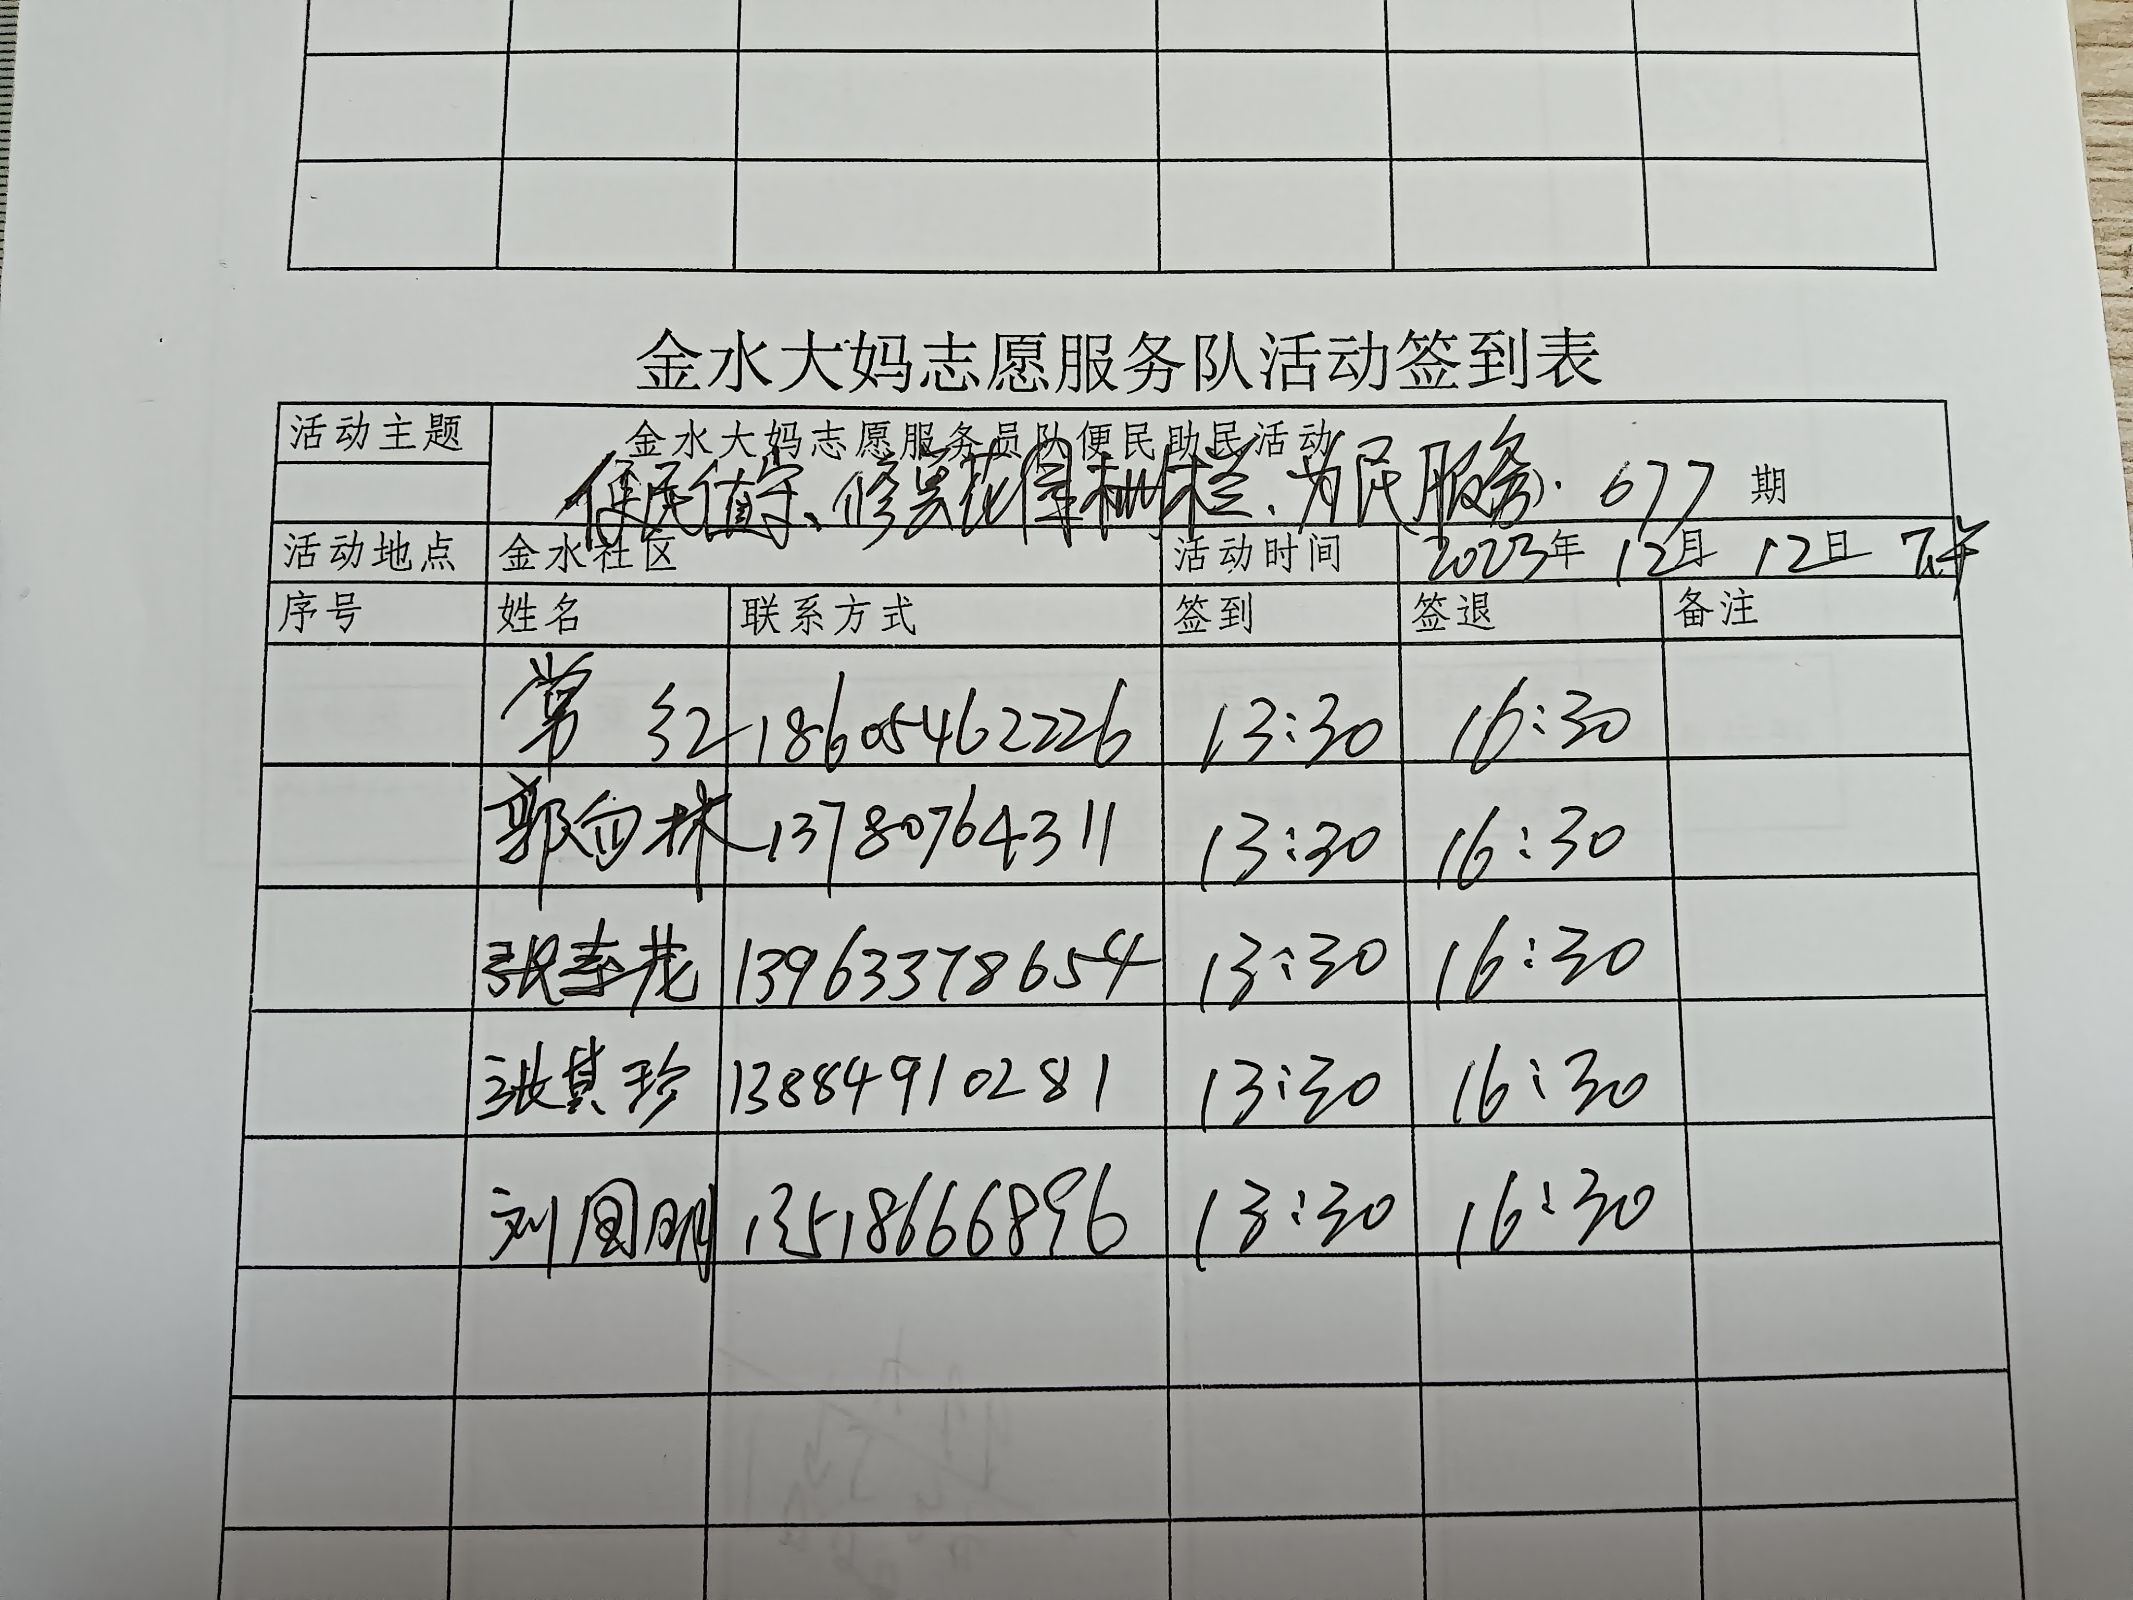 金水大妈志愿服务队活动签到表
活动主题 金水大妈志愿服务员队便民助民活动
便民值守、修剪花园树木栏、为民服务. 677 期
活动地点 金水社区 活动时间 2023年 12月 12日 下午
序号 姓名 联系方式 签到 签退 备注
常红 18605462226 13:30 16:30
郭向林 13780764311 13:30 16:30
张春花 13963378654 13:30 16:30
张其珍 13884910281 13:30 16:30
刘国明 13518666896 13:30 16:30